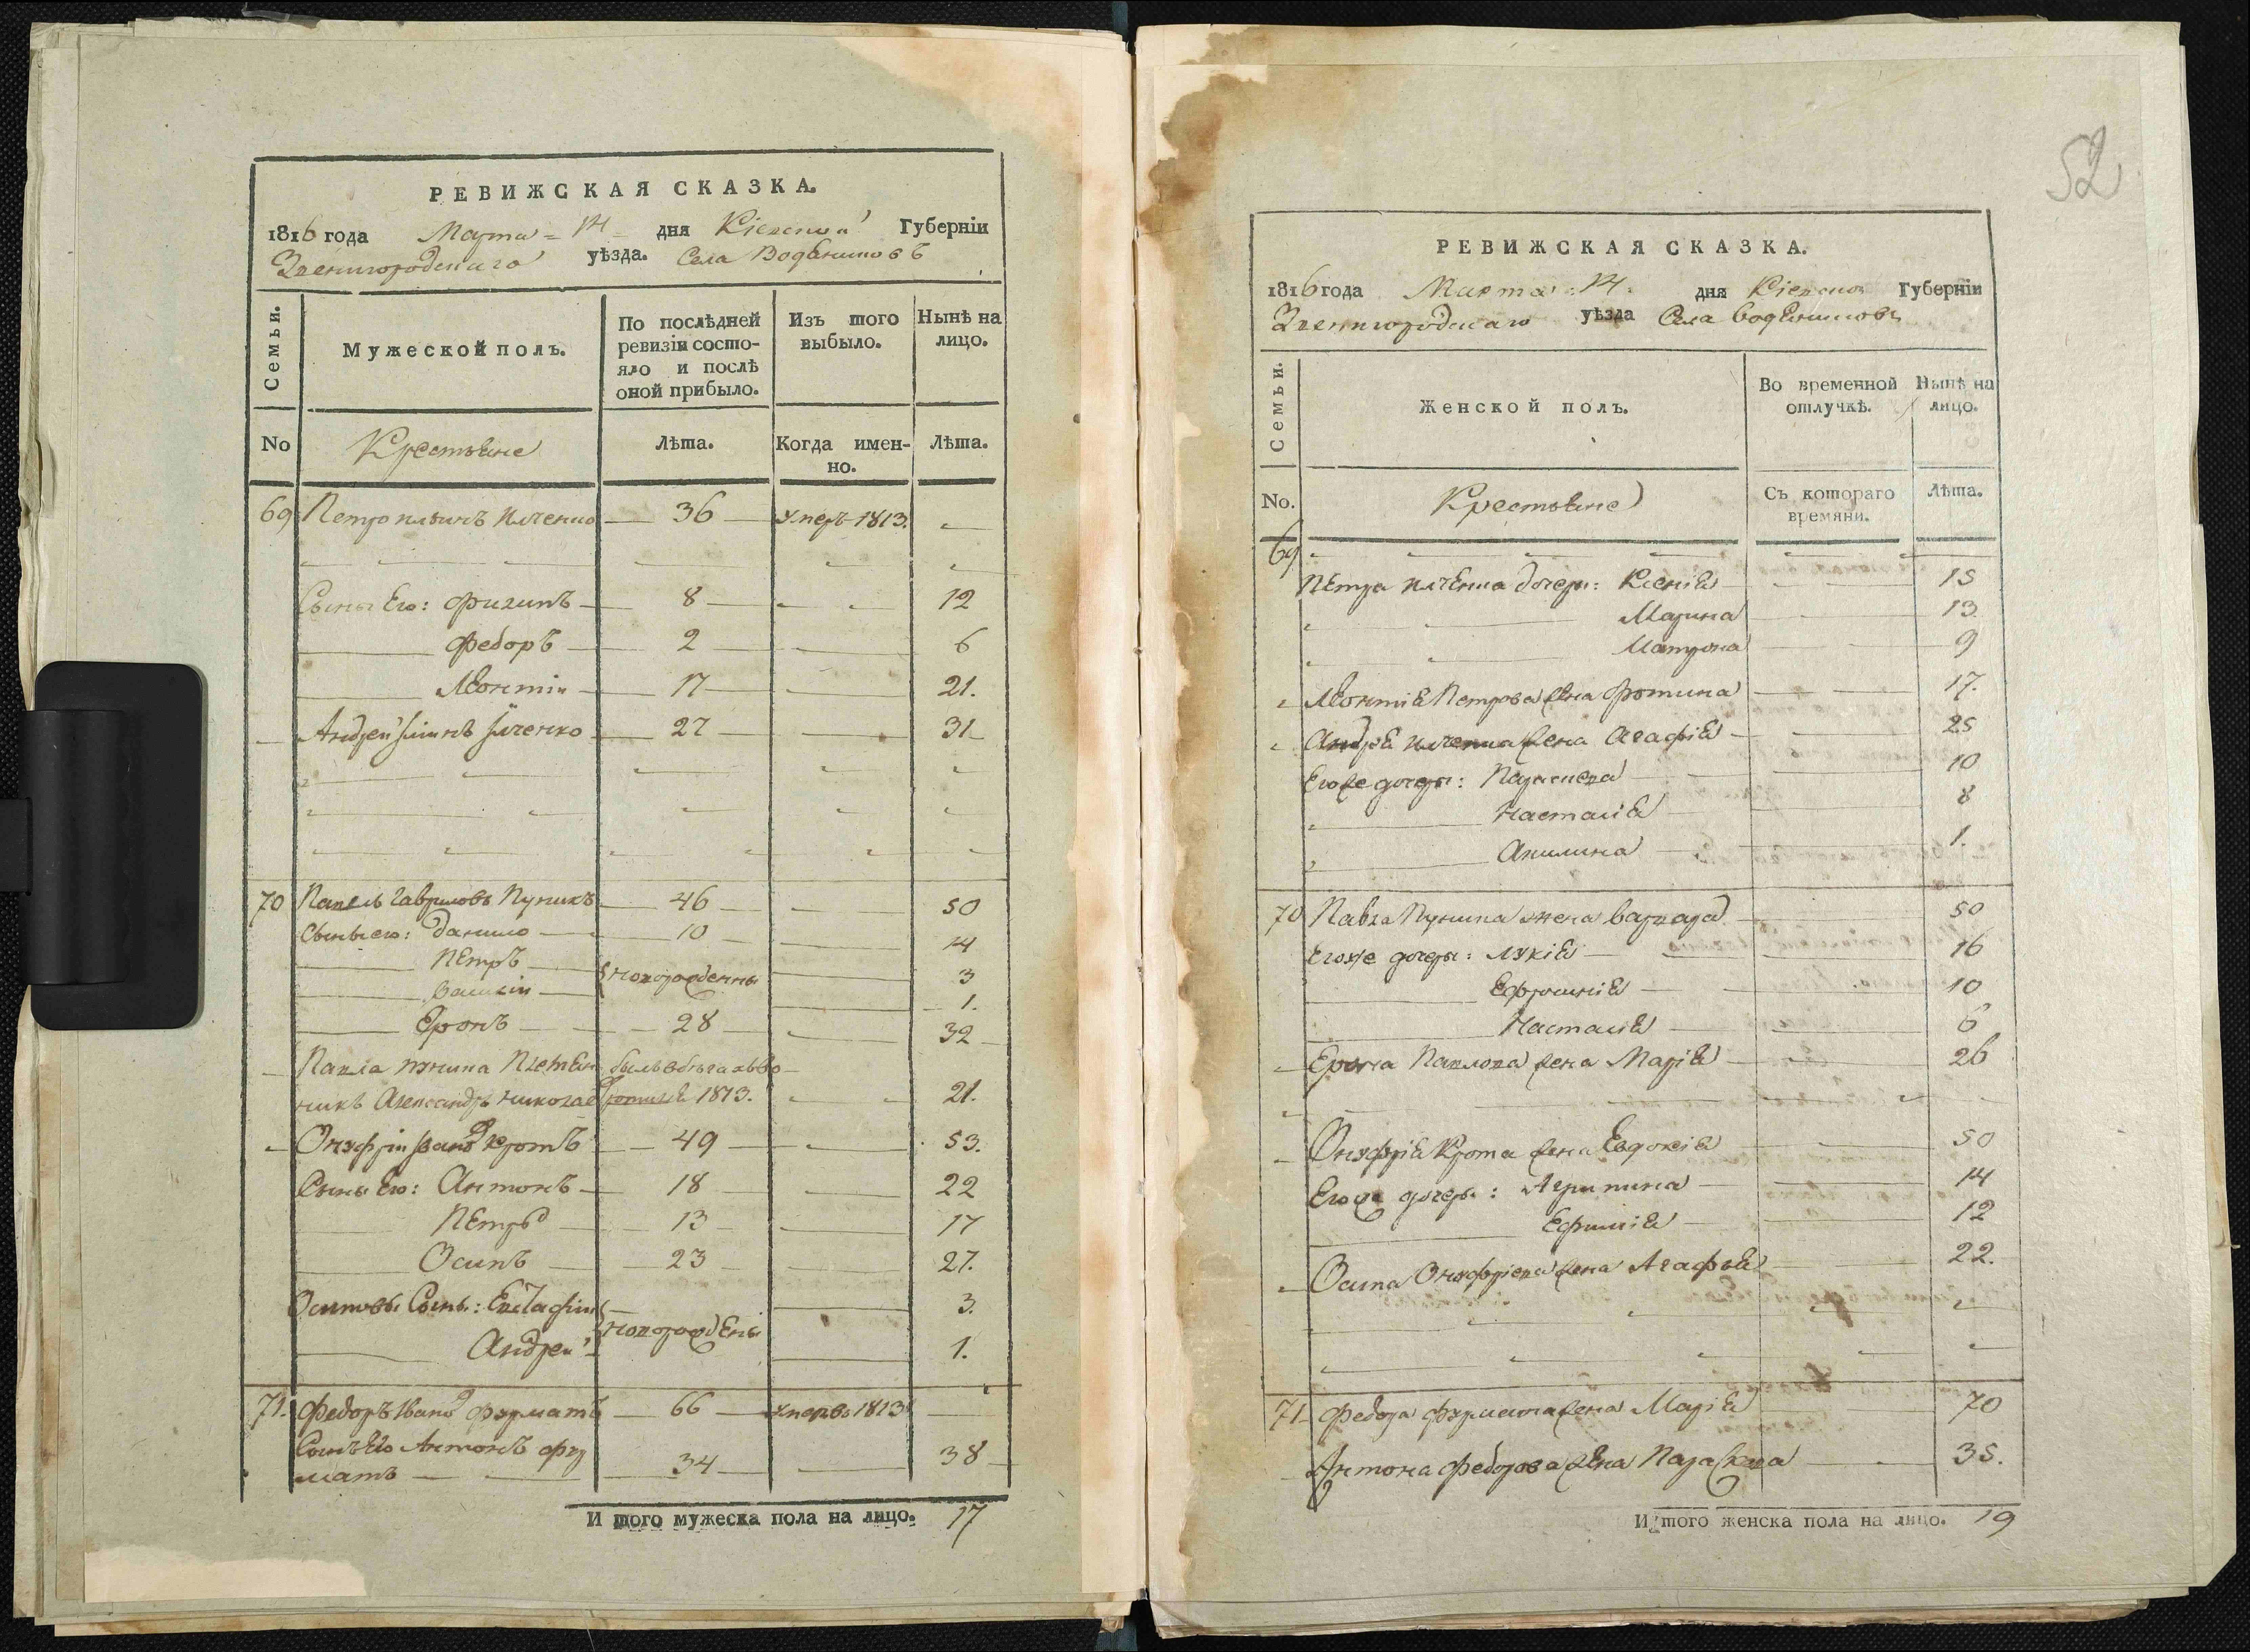 РЕВИЖСКАЯ СКАЗКА.
1816 года Марта 14 дня Кіевской Губерніи
Звенигородскаго уѣзда. Села Водяниковъ
Семьи. Мужеской полъ. По послѣдней ревизіи состояло и послѣ оной прибыло. Изъ того выбыло. Нынѣ на лицо.
No Крестьяне Лѣта. Когда именно. Лѣта.
69 Петро Ильинъ Илченко 36 умеръ 1813.
Сыны Его: Филипъ 8 12
Федоръ 2 6
Леонтіи 17 21.
Андрей Илченко 27 31
70 Павелъ Гавриловъ Пуникъ 46 50
Сыны его: Данило 10 14
Петръ новорожденны 3
Василіи 1.
Еронъ 28 32
Павла Пуника Племян былъ в бегахъ
никъ Александръ Николае 1813. 21.
Онуфріи Ивановъ Кротъ 49 53.
Сыны Его: Антонъ 18 22
Петръ 13 17
Осипъ 23 27.
Осиповы Сыны: Евстафіи 3.
новорождены
Андрей 1.
71. Федоръ Ивановъ Фурматъ 66 умер въ 1813
Сынъ Его Антонъ Фур
матъ 34 38
И того мужеска пола на лицо. 17
52
РЕВИЖСКАЯ СКАЗКА.
1816 года Марта 14. дня Кіевской Губерніи
Звенигородскаго уѣзда Села Водяниковъ
Семьи. Женской полъ. Во временной отлучкѣ. Нынѣ на лицо.
No. Крестьяне Съ котораго времяни. Лѣта.
69
Петра Илченка дочери: Ксенія 15
Марина 13
Матрона 9
Леонтія Петрова жена Фотина 17.
Андрея Илченка жена Агафія 25
Егоже дочери: Параскева 10
Настасія 8
Акилина 1.
70 Павла Пуника жена Варвара 50
Егоже дочери: Лукія 16
Ефросинія 10
Настасія 6
Ерона Павлова жена Марія 26
Онуфрія Крота жена Евдокія 50
Егоже дочери: Агрипина 14
Ефимія 12
Осипа Онуфріева жена Агафья 22.
71 Федора Фурмата жена Марія 70
Антона Федорова жена Параскева 35.
И того женска пола на лицо. 19